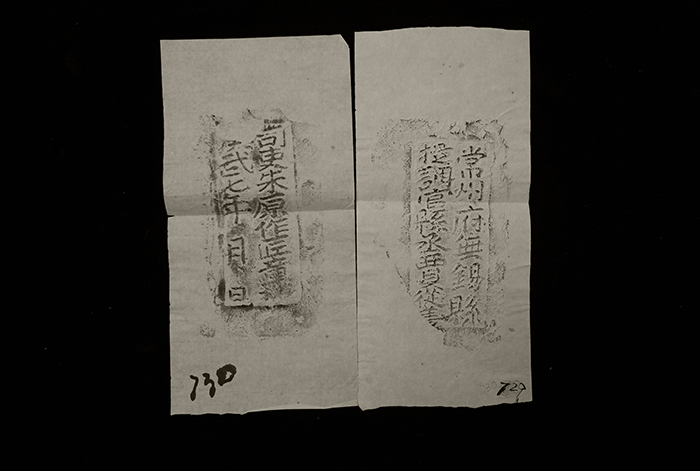 常州府無錫縣
提調官縣丞賈從善
司吏朱原作匠
武七年 月 日
729
730